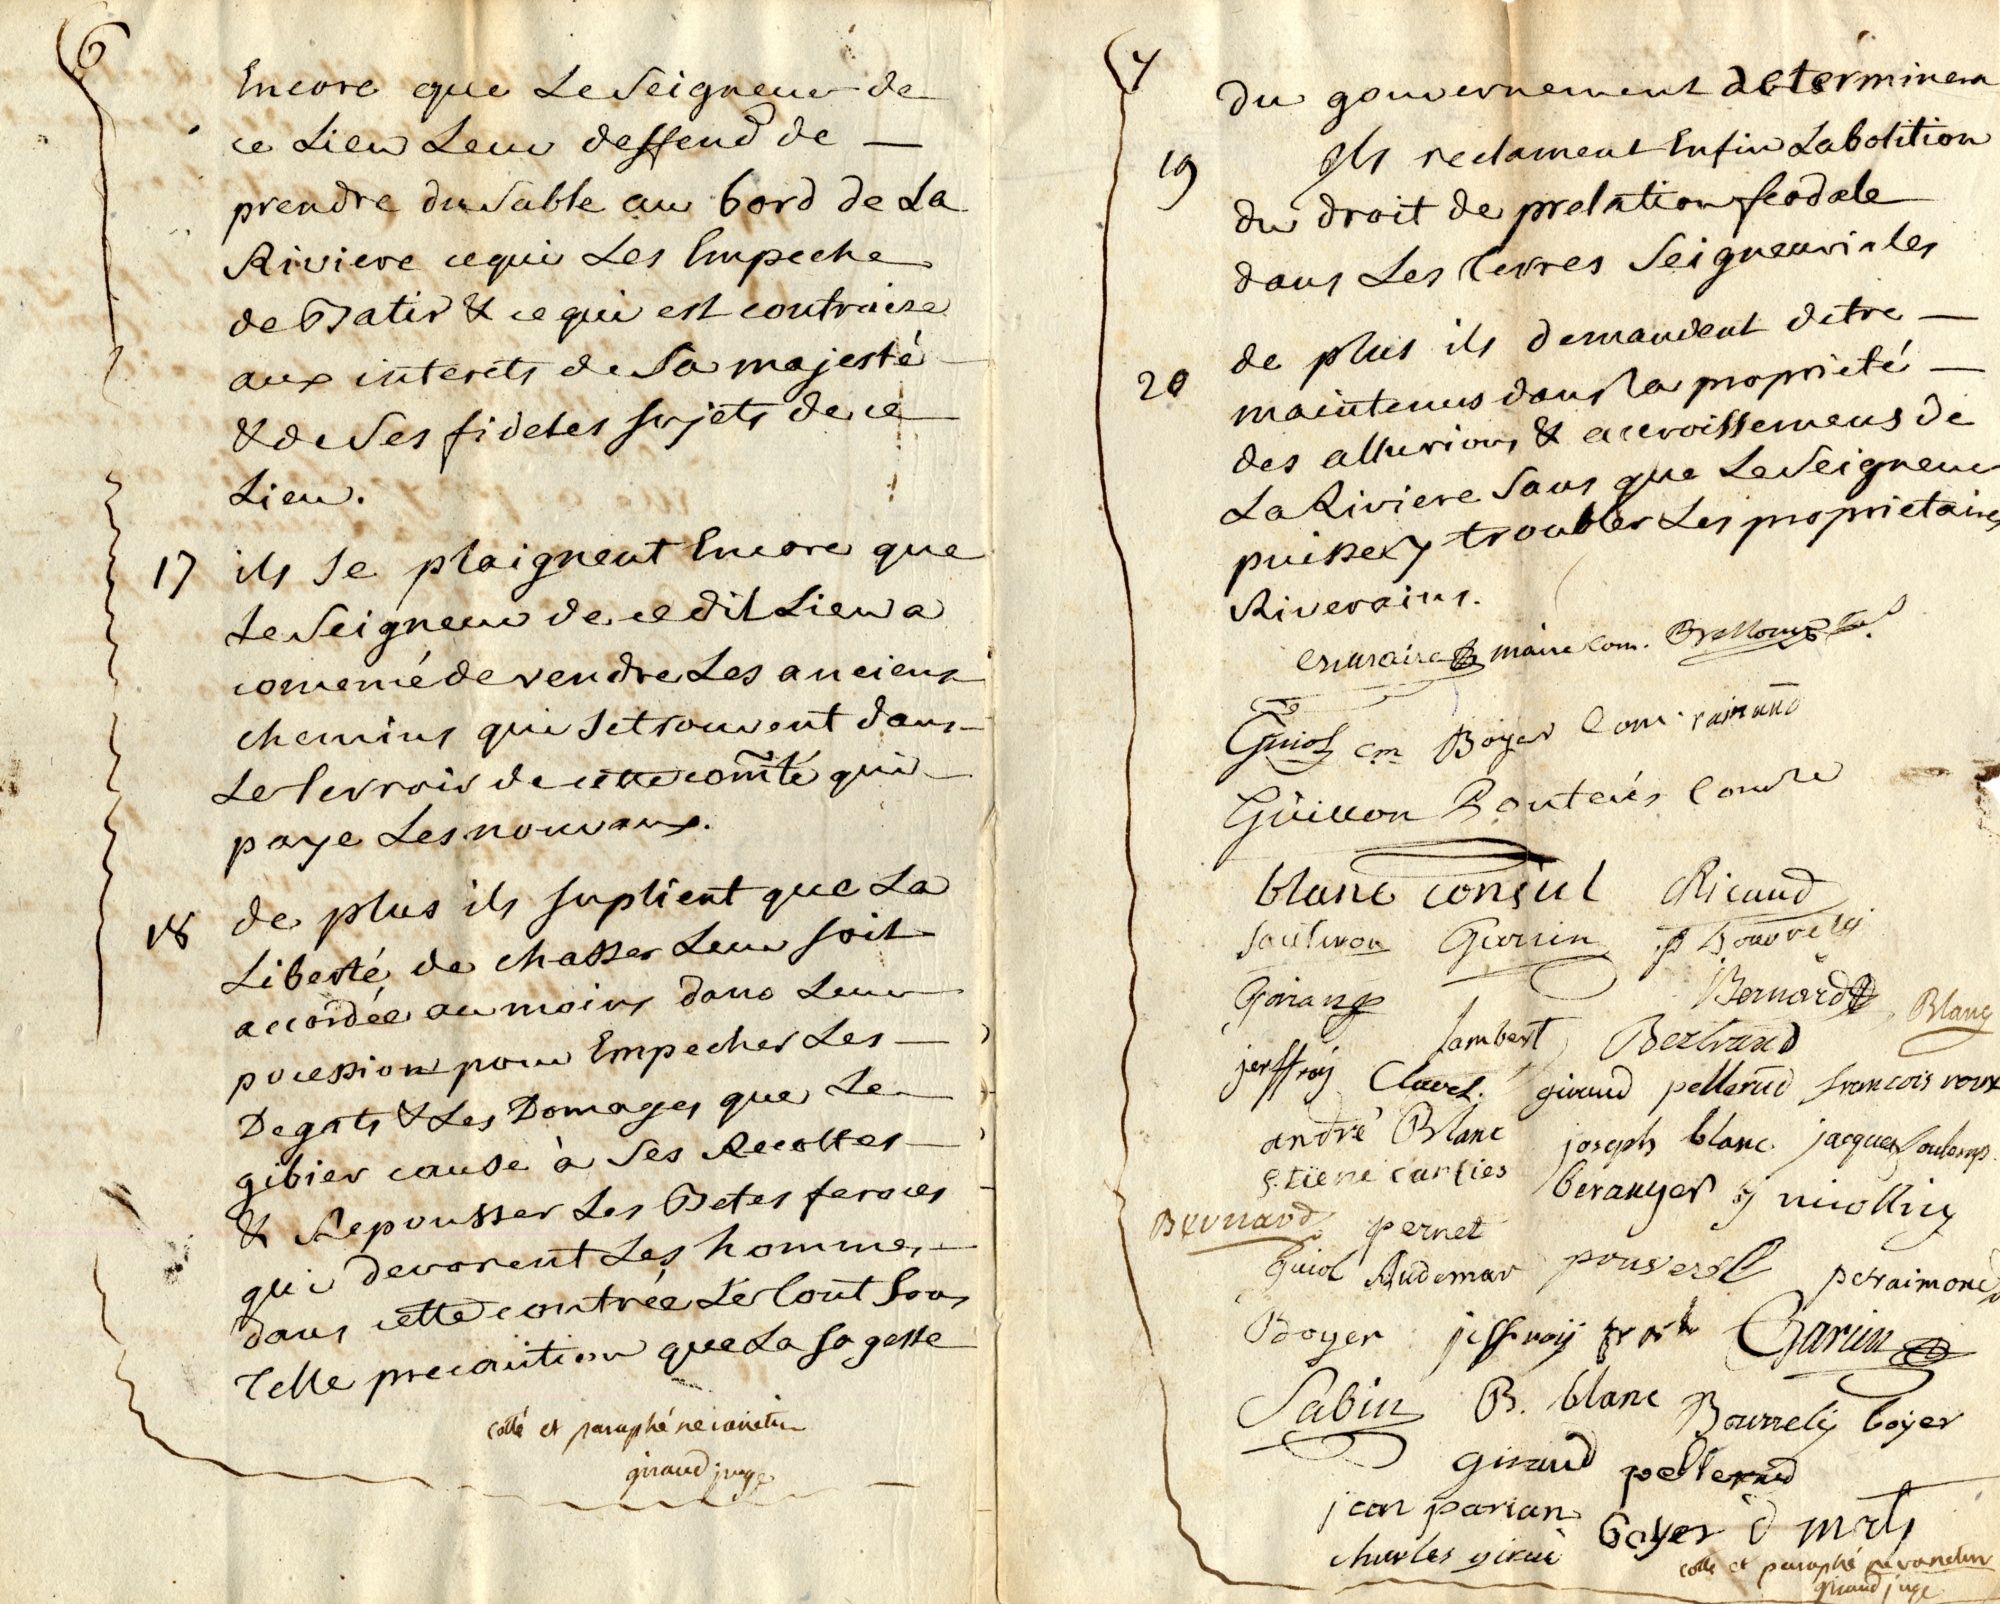 6
Encore que Le Seigneur de
ce Lieu Leur deffend de
prendre du Sable au bord de La
Riviere ce qui Les Empeche
de Batir & ce qui est contraire
aux interets de Sa majesté
& de Ses fideles sujets de ce
Lieu.
17 ils se plaignent Encore que
Le Seigneur de ce dit Lieu a
comencé de vendre Les anciens
chemins qui se trouvent dans
Le Terroir de cette com̃té qui
paye Les nouvaux.
18 de plus ils suplient que La
Liberté de chasser Leur soit
accordée au moins dans Leur
pocession pour Empecher Les
Degats & Les Domages que Le
gibier cause à Ses Recoltes
& Repousser Les Betes feroces
qui devorent Les hommes
dans cette contrée Le Tout Sous
Telle precaution que La sagesse
cotté et paraphé ne varietur
giraud juge
7
du gouvernement determinera
19 Ils reclament Enfin Labolition
du droit de prelation feodale
dans Les Terres Seigneuriales
de plus ils demandent detre
20 maintenus dans La proprieté
des alluvions & accroissemens de
La Riviere Sans que Le Seigneur
puisse y troubler Les proprietaires
Riverains.
maire com.
Guiol cm Boyer Com raimand
Guillon
blanc consul Ricaud
Guerin
Bernard Blanq
Lambert Bertrand
jeffroy Clavel. giraud pellenc francois roux
andré Blanc joseph blanc jacques
beranger
Bernard pernet
Guiol Audemar peiraimond
Boyer jeffroy Garcin
Sabin B. blanc Bourrely boyer
giraud
jean parian boyer d
charles
cotté et paraphé ne varietur
giraud juge